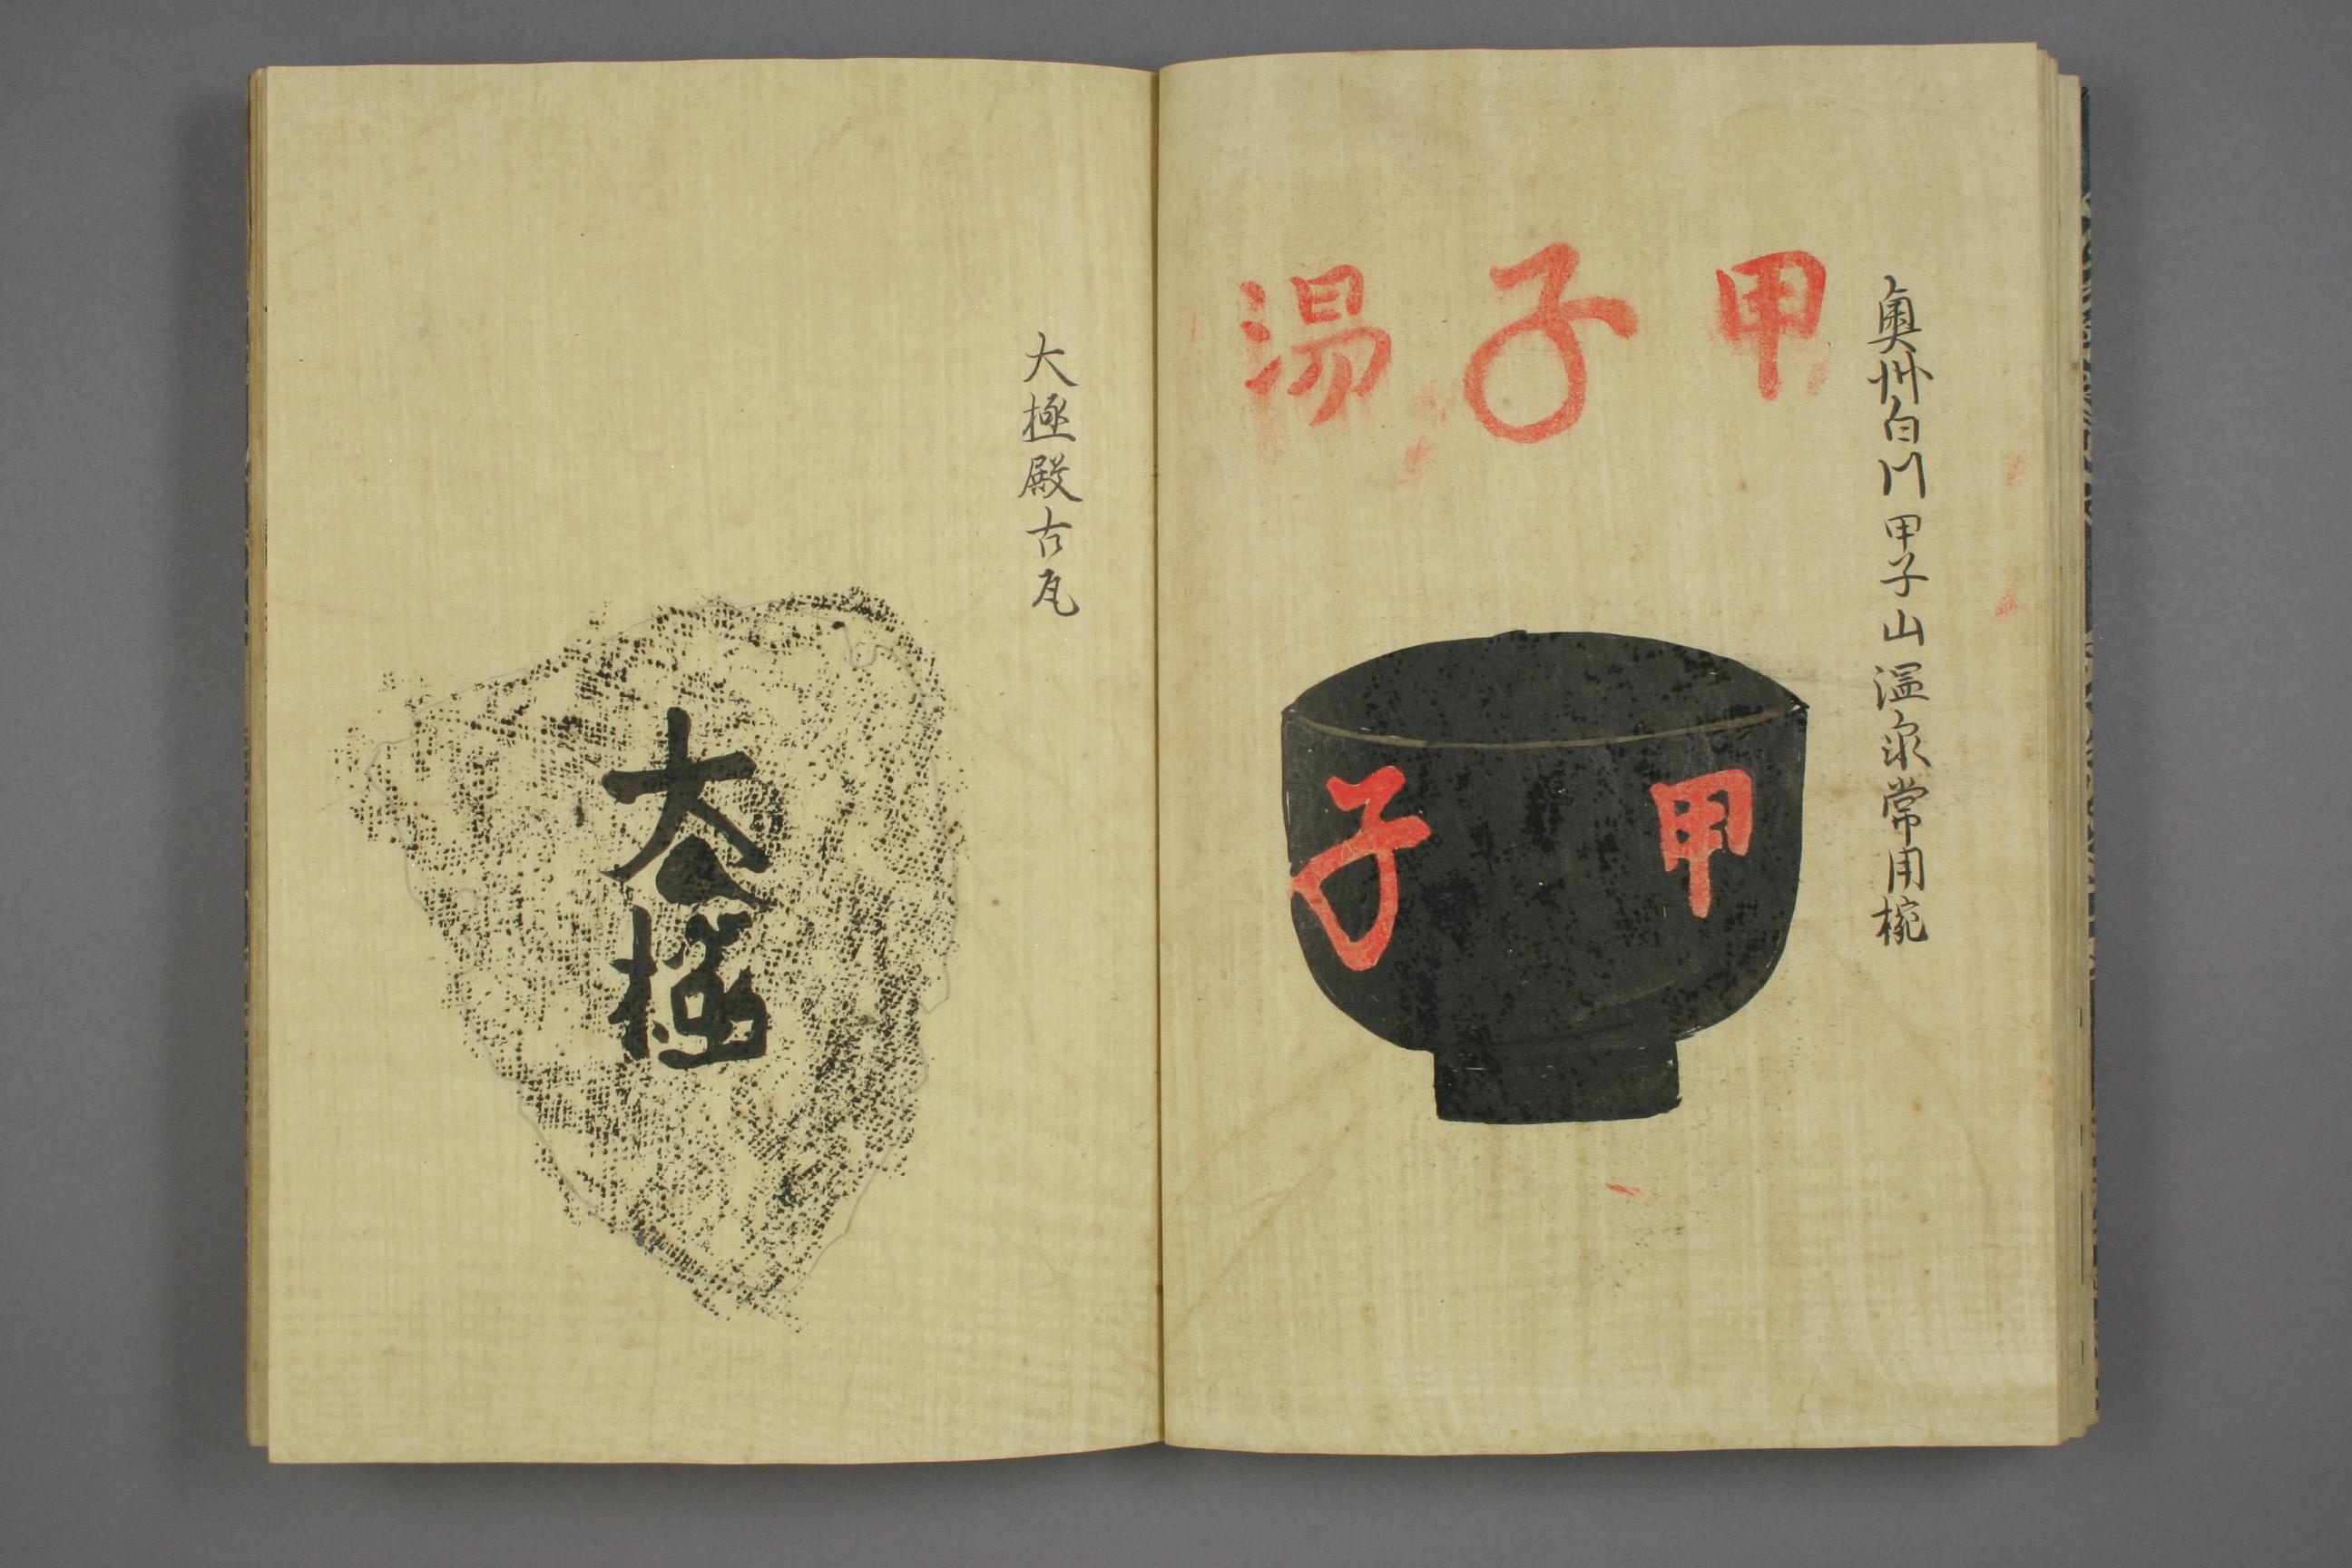 奥州白川甲子山温泉常用椀
甲子湯
甲子
大極殿古瓦
大極